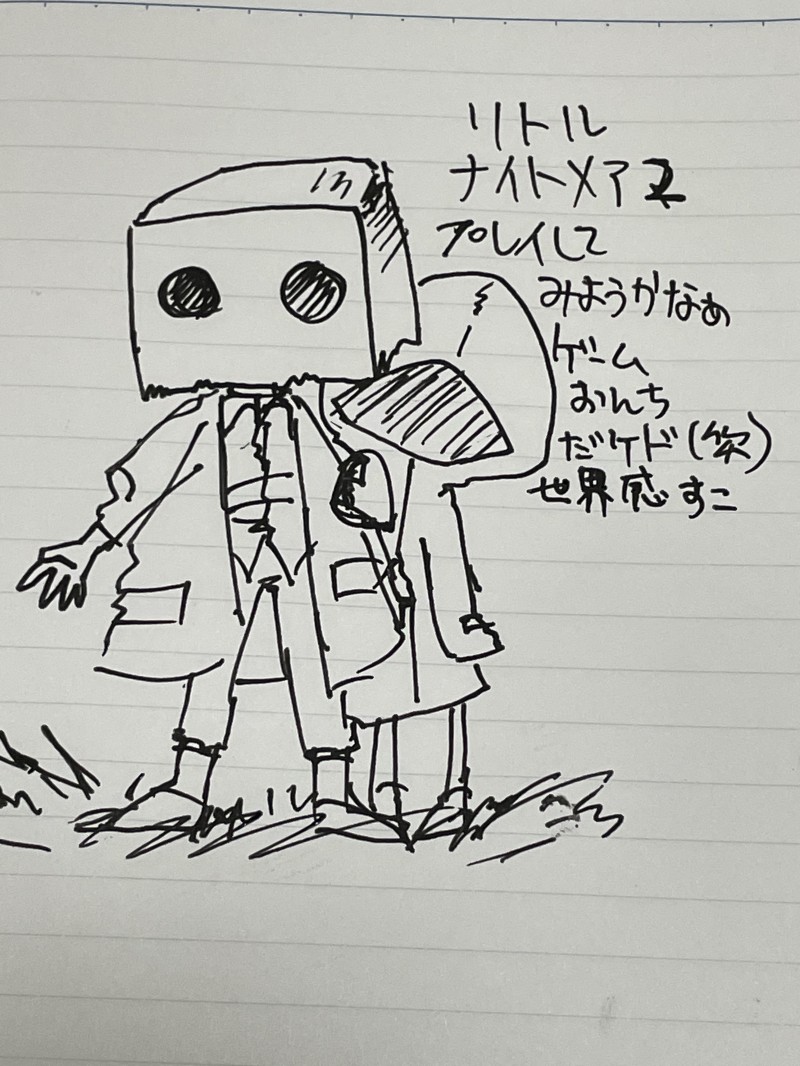 リトル
ナイトメア2
プレイして
みようかなぁ
ゲーム
おんち
だケド(笑)
世界感すこ